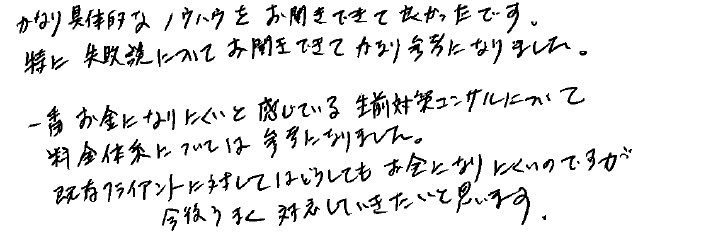 かなり具体的なノウハウをお聞きできて良かったです。
特に失敗談についてお聞きできてかなり参考になりました。
一番お金になりにくいと感じている生前対策コンサルについて
料金体系については参考になりました。
既存クライアントに対してはどうしてもお金になりにくいのですが
今後うまく対応していきたいと思います。